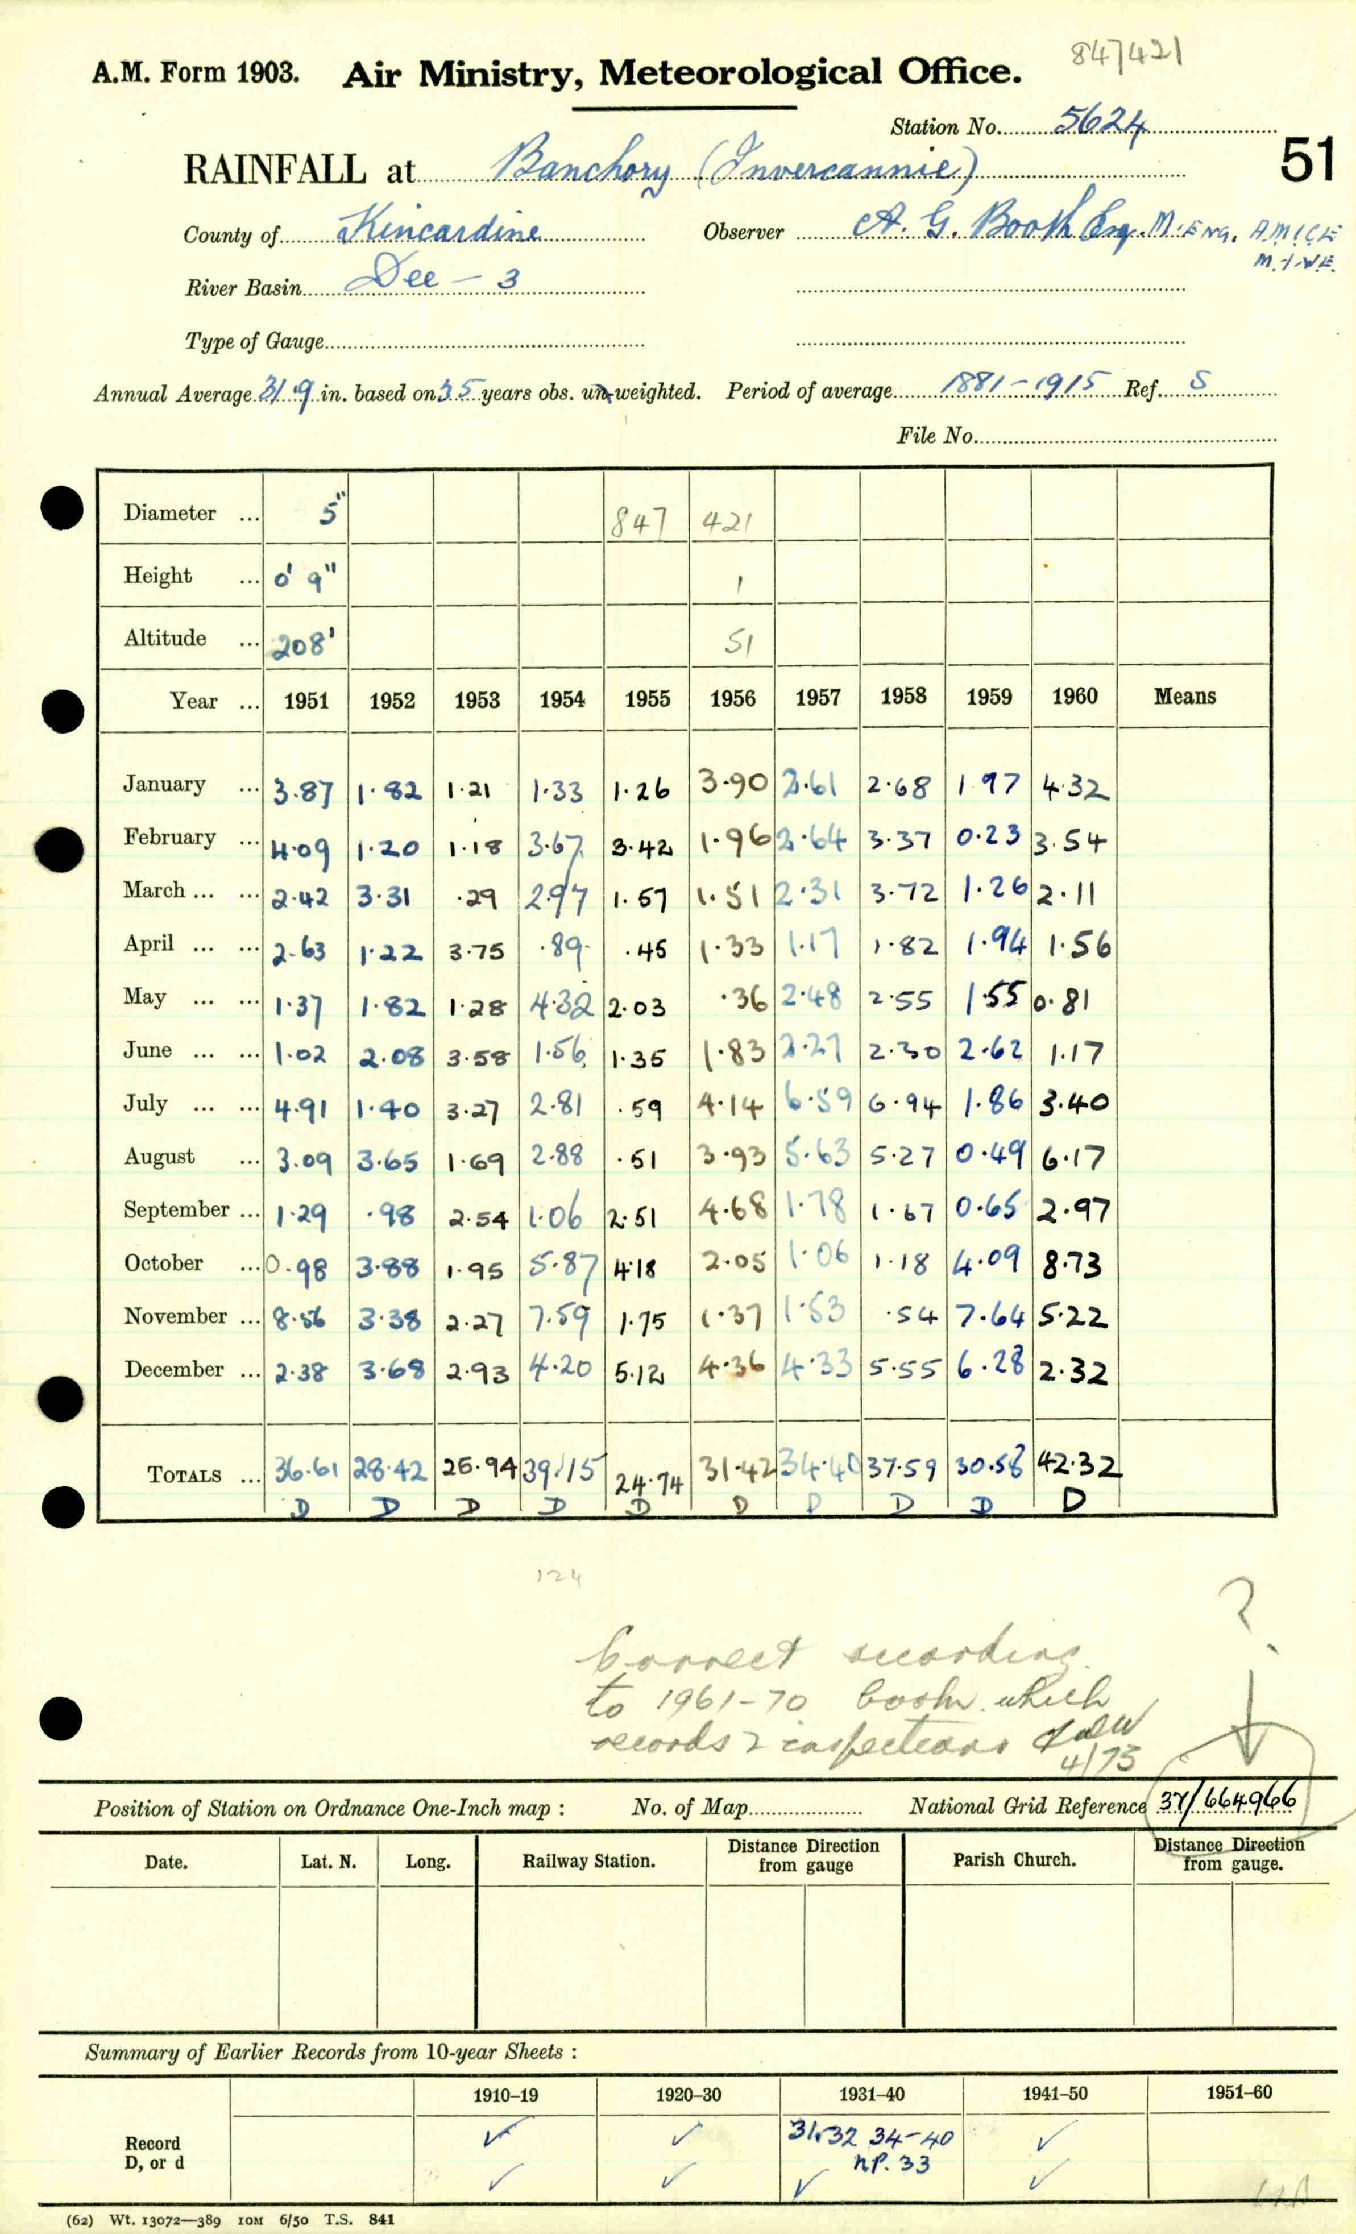 847421
A.M. Form 1903. Air Ministry, Meteorological Office.
Station No. 5624
51
RAINFALL at Banchory (Invercannie)
County of Kincardine Observer A. G. Booth Esq. M.ENG. A.M.I.C.E
M.I.W.E.
River Basin Dee - 3
Type of Gauge
Annual Average 31.9 in. based on 35 years obs. un-weighted. Period of average 1881-1915 Ref. S
File No.
Diameter ... 5" 847 421
Height ... 0' 9" 1
Altitude ... 208' 51
Year ... 1951 1952 1953 1954 1955 1956 1957 1958 1959 1960 Means
January ... 3.87 1.82 1.21 1.33 1.26 3.90 2.61 2.68 1.97 4.32
February ... 4.09 1.20 1.18 3.67 3.42 1.96 2.64 3.37 0.23 3.54
March ... ... 2.42 3.31 .29 2.97 1.57 1.51 2.31 3.72 1.26 2.11
April ... ... 2.63 1.22 3.75 .89 .45 1.33 1.17 1.82 1.94 1.56
May ... ... 1.37 1.82 1.28 4.32 2.03 .36 2.48 2.55 1.55 0.81
June ... ... 1.02 2.08 3.58 1.56 1.35 1.83 2.27 2.30 2.62 1.17
July ... ... 4.91 1.40 3.27 2.81 .59 4.14 6.59 6.94 1.86 3.40
August ... 3.09 3.65 1.69 2.88 .51 3.93 5.63 5.27 0.49 6.17
September ... 1.29 .98 2.54 1.06 2.51 4.68 1.78 1.67 0.65 2.97
October ... 0.98 3.88 1.95 5.87 4.18 2.05 1.06 1.18 4.09 8.73
November ... 8.56 3.38 2.27 7.59 1.75 1.37 1.53 .54 7.64 5.22
December ... 2.38 3.68 2.93 4.20 5.12 4.36 4.33 5.55 6.28 2.32
TOTALS ... 36.61 28.42 25.94 39.15 24.74 31.42 34.40 37.59 30.58 42.32
D D D D D D D D D D
124
?
Correct according
to 1961-70 book which
records 2 inspections
4/73
Position of Station on Ordnance One-Inch map : No. of Map National Grid Reference 37/664966
Date. Lat. N. Long. Railway Station. Distance Direction from gauge Parish Church. Distance Direction from gauge.
Summary of Earlier Records from 10-year Sheets :
1910–19 1920–30 1931–40 1941–50 1951–60
Record ✓ ✓ 31.32 34-40 ✓
D, or d ✓ ✓ ✓ NP. 33 ✓
(62) Wt. 13072—389 10M 6/50 T.S. 841